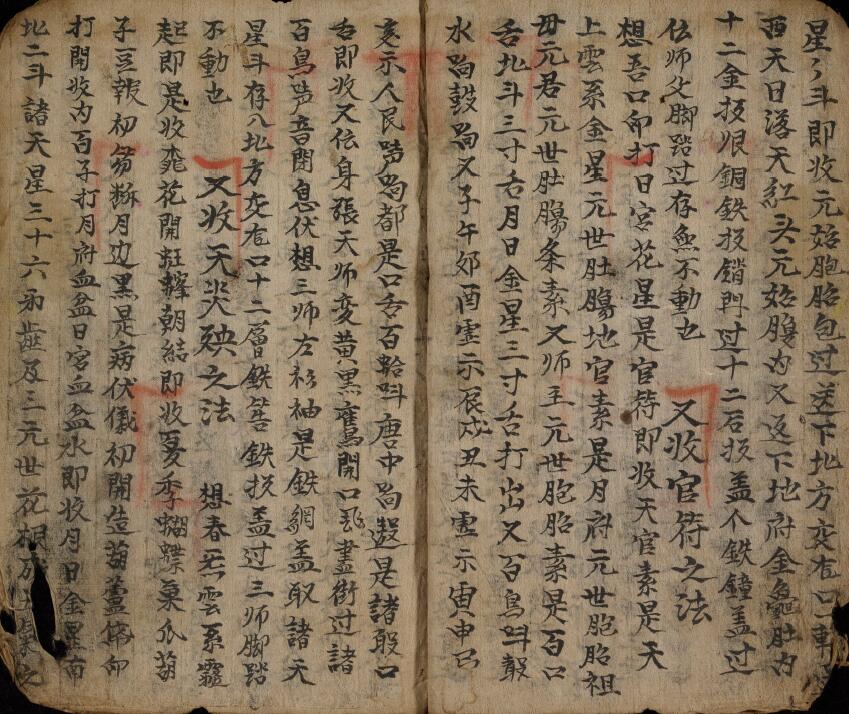 星斗即收元始胞胎包过送下地方交有口
西天日落天紅头元始腹内又返下地府金龜肚内
十二金投銀銅鉄投鎖門过十二石投盖个鉄鐘盖过
伝师父脚踏过存魚不動也　又收官符之法
想吾口卯打日宮花星是官符即收天官素是天
上雲系金星元世肚腸地官素是月府元世胞胎祖
母元君元世肚腸条素又师主元世胞胎素是百口
舌北斗三寸舌月日金星三寸舌打出又百鳥叫
水鼓又子午卯酉霊示辰戌丑未霊示寅申巳
亥示人民声都是口舌百蛤叫唐中是諸般口
舌即收又伝身張天师变黄黑鷹開口飛盡街过諸
百鳥声音閉息伏想三师左衫袖是鉄網盖取諸天
星斗存入北方交有口十二層鉄鉄投盖过三师脚踏
不動也　又收天災殃之法　想春雲系
起即是收花開朝結即收夏季蝴蝶菓瓜葫
子豆初月边黒是病伏儀初開造葫蘆卯
打開收内百子打月府血盆日宮血盆水即收月日金星南
北二斗諸天星三十六及三元世花根之